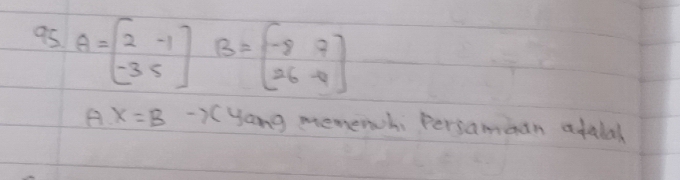 95. A = [2 -1] B = [-8 7]
[-3 5] [26 -9]
AX = B → X yang memenuhi Persamaan adalah